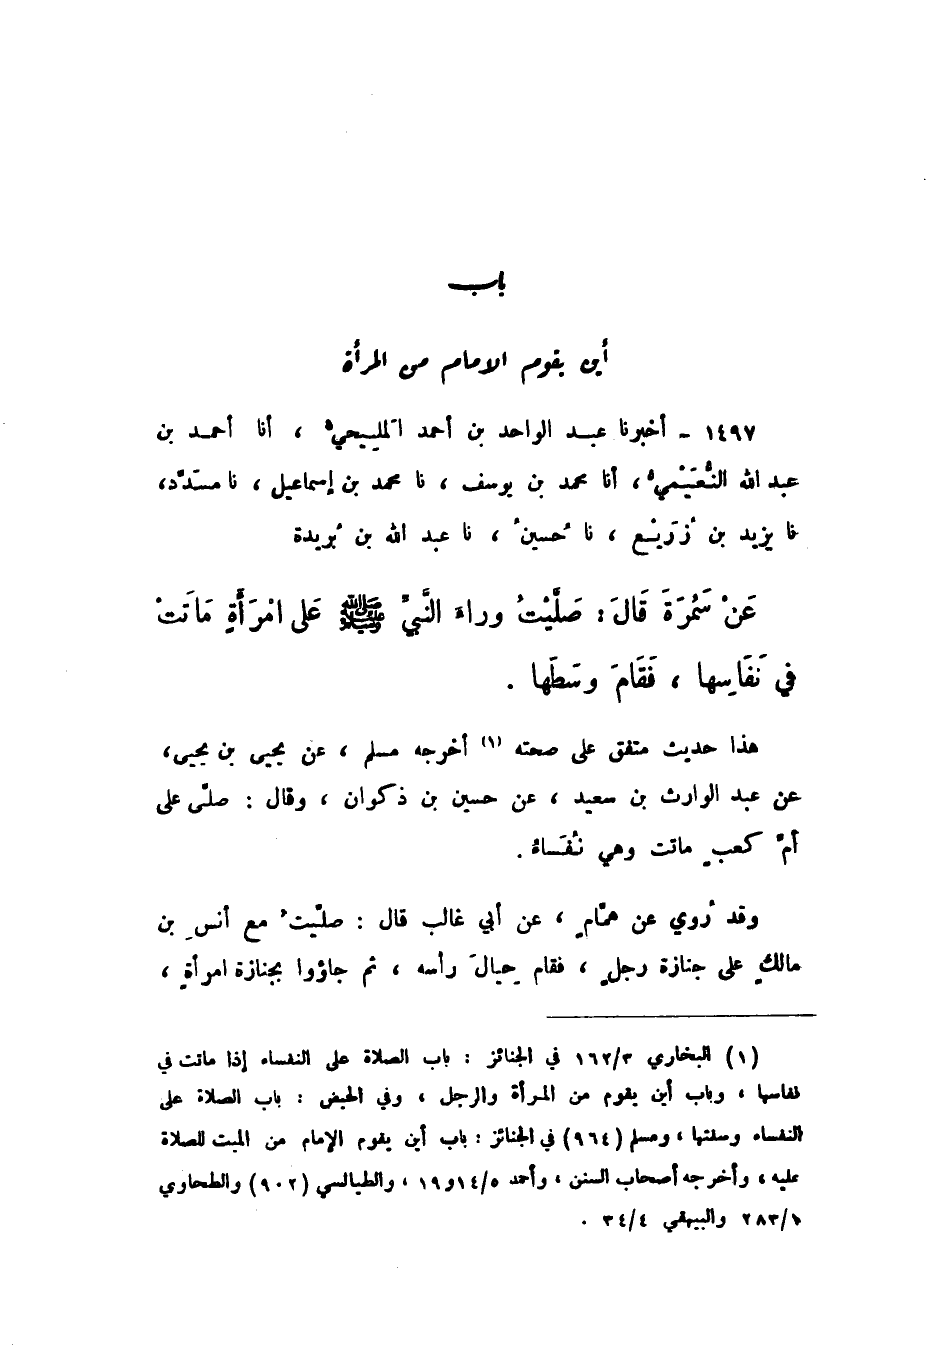 باب
أين يقوم الامام من المرأة
١٤٩٧ - أخبرنا عبد الواحد بن أحمد المليحيُّ ، أنا أحمد بن
عبد الله النُّعَيْميُّ ، أنا محمد بن يوسف ، نا محمد بن إسماعيل ، نا مسَدَّد،
نا يزيد بن زُرَيْع ، نا حُسين ، نا عبد الله بن بُريدة
عَنْ سَمُرَةَ قَالَ : صَلَّيْتُ وراءَ النَّبيِّ ﷺ عَلى امْرَأَةٍ مَاتَتْ
في نَفَاسِها ، فَقَامَ وسَطَها .
هذا حديث متفق على صحته (١) أخرجه مسلم ، عن يحيى بن يحيى،
عن عبد الوارث بن سعيد ، عن حسين بن ذكوان ، وقال : صلّى على
أمّ كعبٍ ماتت وهي نُفَسَاءُ .
وقد رُوي عن همّامٍ ، عن أبي غالب قال : صلّيتُ مع أنسِ بن
مالكٍ على جنازة رجلٍ ، فقام حِيالَ رأسه ، ثم جاؤوا بجنازة امرأةٍ ،
(١) البخاري ١٦٢/٣ في الجنائز : باب الصلاة على النفساء إذا ماتت في
نفاسها ، وباب أين يقوم من المرأة والرجل ، وفي الحيض : باب الصلاة على
النفساء وسنتها ، ومسلم (٩٦٤) في الجنائز : باب أين يقوم الإمام من الميت للصلاة
عليه ، وأخرجه أصحاب السنن ، وأحمد ١٤/٥و١٩ ، والطيالسي (٩٠٢) والطحاوي
٢٨٣/١ والبيهقي ٣٤/٤ .